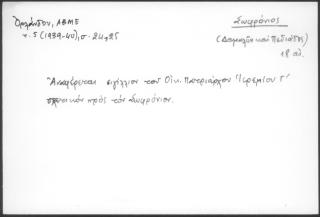 Ὀρλάνδου, ΑΒΜΕ
τ. 5 (1939-40), σ. 24, 25
Σωφρόνιος
(Δαμαλῶν καὶ Πεδιάδος)
18 αἰ.
Ἀναφέρεται σιγίλλιον τοῦ Οἰκ. Πατριάρχου Ἱερεμίου Γ΄
σχετικὸν πρὸς τὸν Σωφρόνιον.